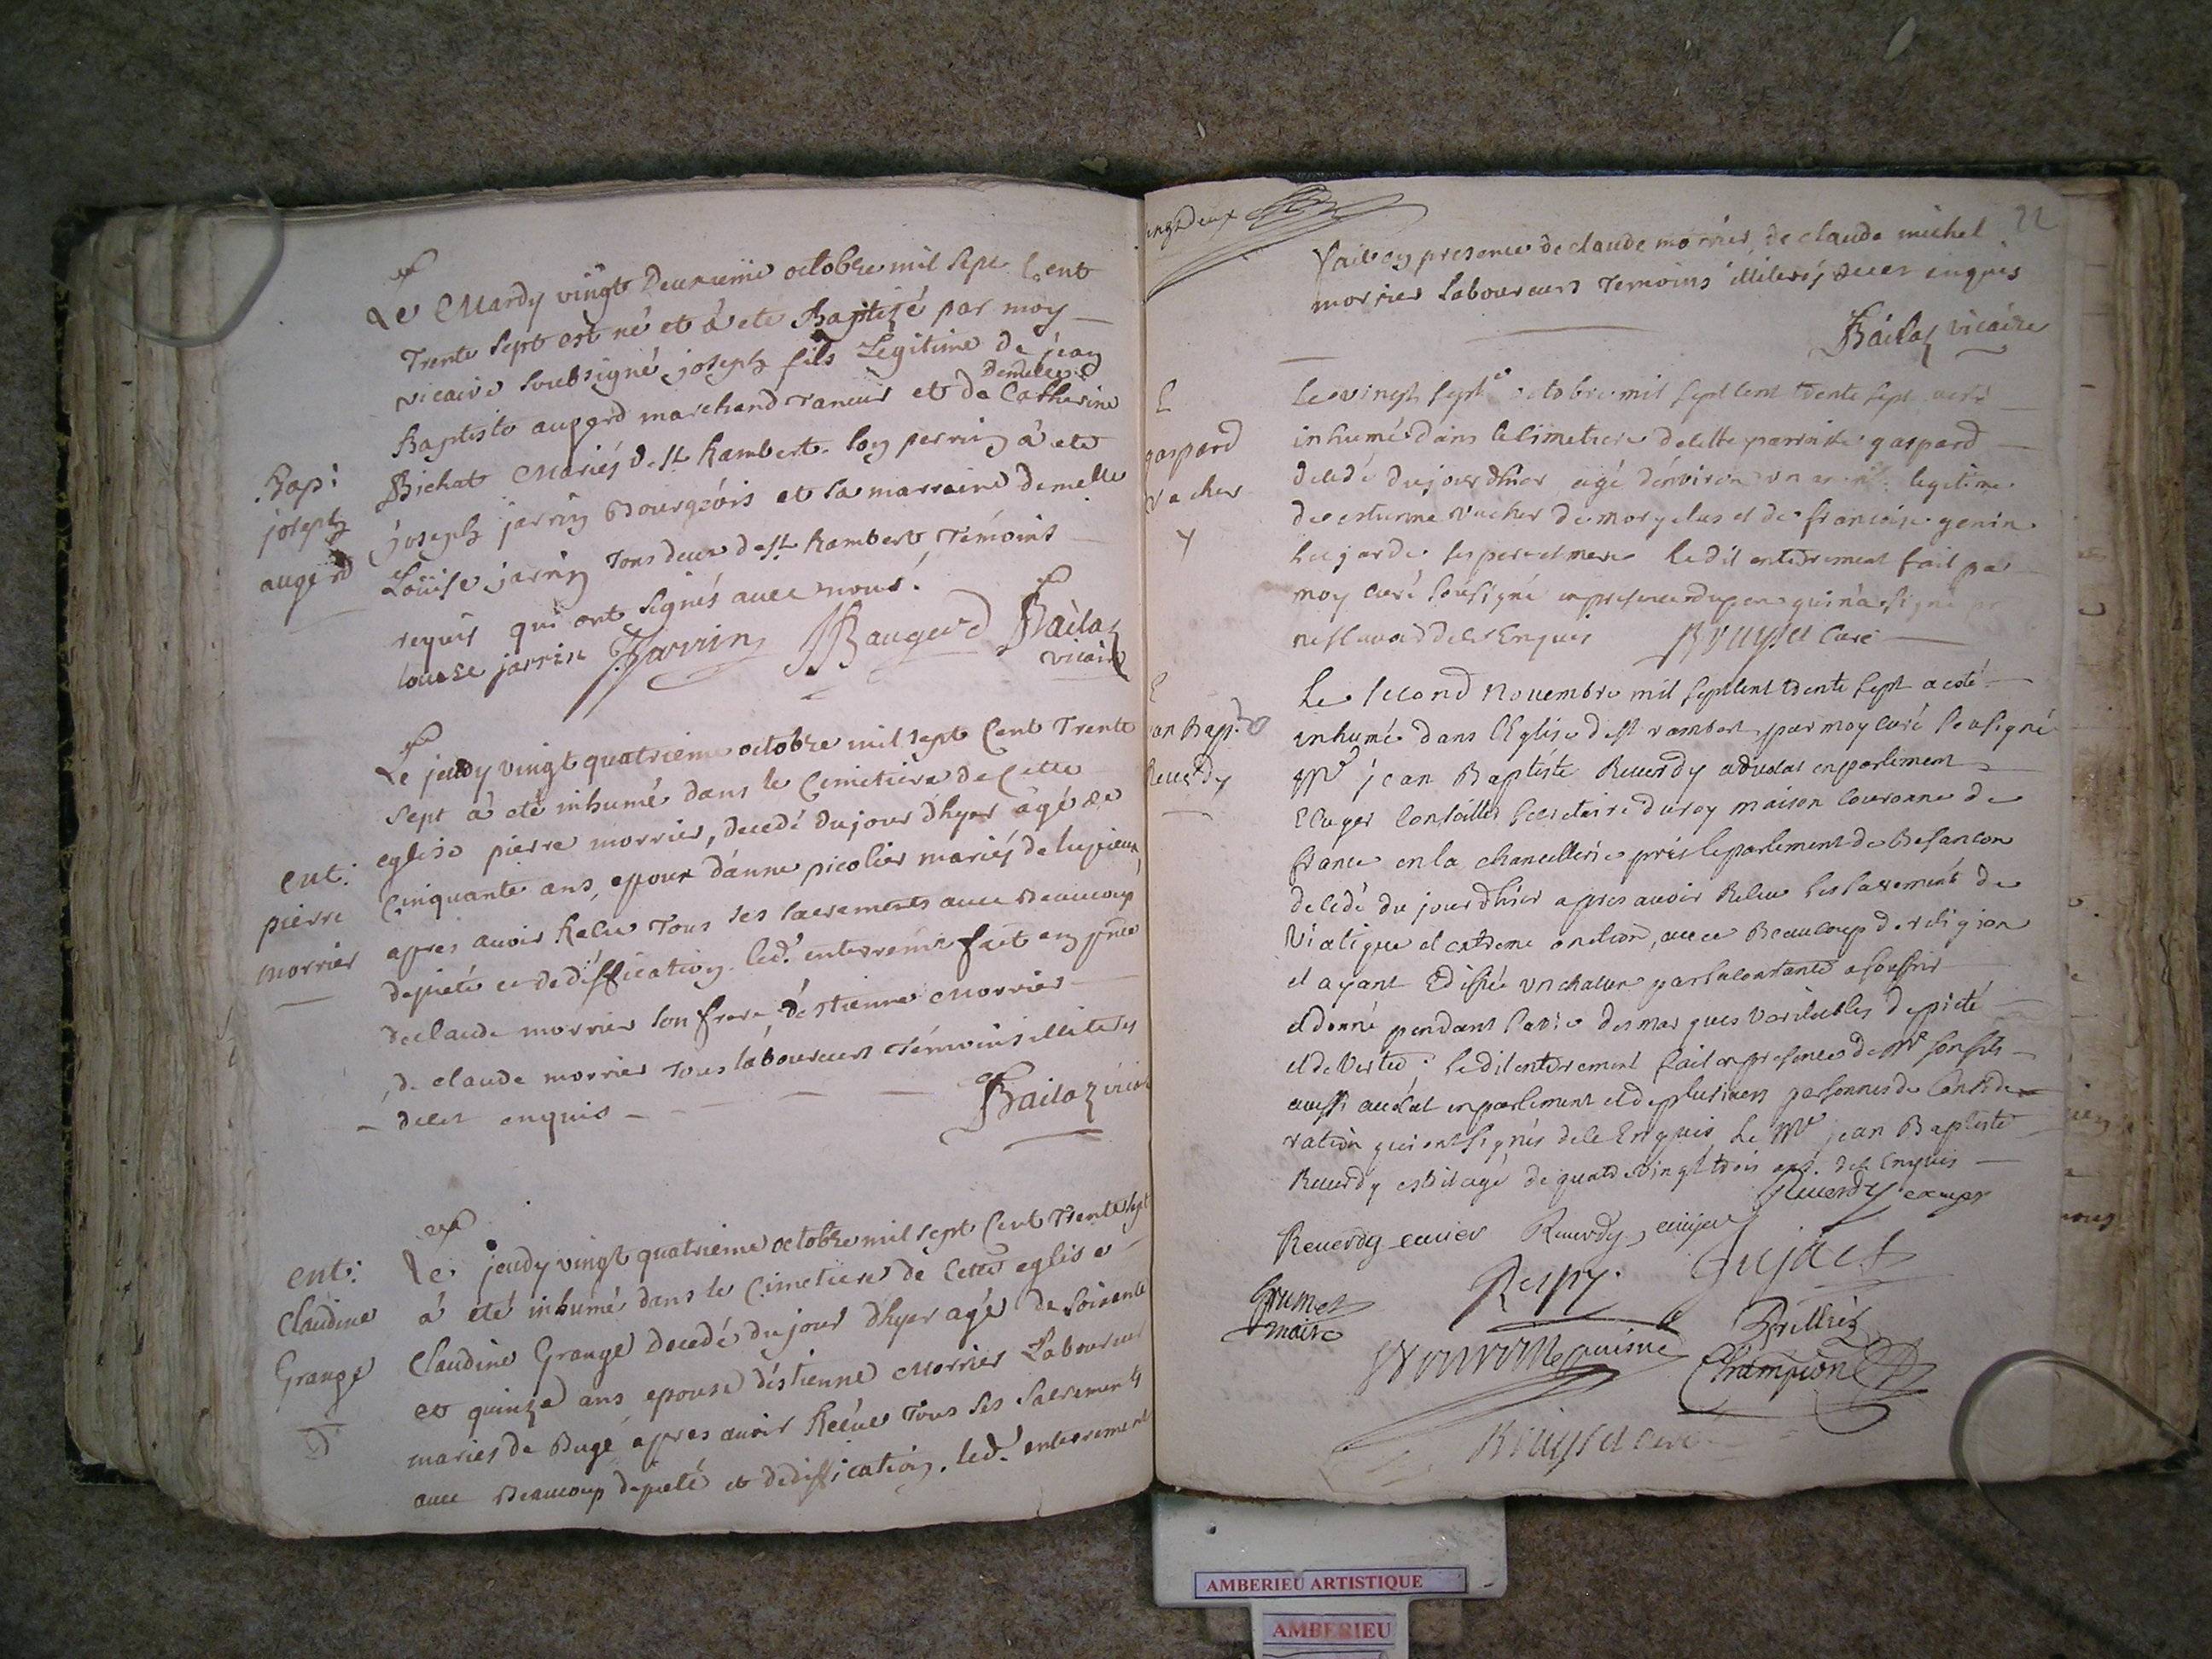 Le Mardy vingt Deuxieme octobre mil sept Cent
Trente sept est né et à eté Baptizé par moy
vicaire soubsigné joseph fils Legitime de jean
Baptiste augerd marchand Taneur et de Demelle Catherine
Bichat Mariés de st Rambert. son perrin à eté
joseph jarrin Bourgeois et sa marraine demelle
Loüise jarrin Tous deux de st Rambert, Témoins
requis qui ont signés avec nous.
louise jarrin Jarrin JB augerd Bailaz
vicaire
Bap:
joseph
augerd
Le jeudy vingt quatrieme octobre mil sept Cent Trente
sept à eté inhumé dans le Cimetiere de Cette
eglise pierre morrier, decedé du jour d'hyer âgé de
Cinquante ans, epoux d'anne picolier mariés de
apres avoir Recu Tous ses sacrements avec Beaucoup
de pieté et dediffication. led. enterremt fait en pnce
de claude morrier son frere, d'estienne Morrier
de claude morrier Tous laboureurs Témoins illiteres
de ce enquis
Bailaz vicaire
ent:
pierre
morrier
Le jeudy vingt quatrieme octobre mil sept Cent Trente sept
à eté inhumé dans le Cimetiere de Cette eglise
Claudine Grange decedé du jour d'hyer agé de soixente
et quinze ans epouse d'estienne Morrier Laboureur
mariés de Bugé apres avoir Recue Tous ses sacrements
avec Beaucoup de pieté et dediffication. led. enterrement
ent:
Claudine
Grange
22
fait en presence de claude morrier, de claude michel
morrier laboureurs Temoins illiterés de ce enquis
Bailaz vicaire
Le vingt sept octobre mil sept cent trente sept a eté
inhumé dans le cimetiere de cette parroisse gaspard
decedé du jour d'hier agé d'environ un an legitime
de estienne vucher de morgelas et de francoise genin
ses pere et mere ledit enterrement fait par
moy curé sousigné en presence du pere qui n'a signé
ne scavoir de ce Enquis Bruyset Curé
E
gaspard
vucher
Le second Novembre mil sept cent trente sept a eté
inhumé dans l'Eglise de st rambert par moy curé sousigné
Mr jean Baptiste Reverdy advocat en parlement
Ecuyer Conseiller secretaire du roy maison couronne de
france en la chancellerie près le parlement de Besancon
decedé du jour d'hier apres avoir Recu les sacrements de
Viatique et extreme onction, avec Beaucoup de religion
et ayant Edifiée un chacun par sa constance a souffrir
et donné pendant sa vie des marques veritables de pieté
et de vertu; ledit enterrement fait en presence de Mr son fils
aussi avocat en parlement et de plusieurs personnes de Conside
ration qui ont signés de ce Enquis le Mr jean Baptiste
Reverdy estoit agé de quatre vingt trois ans. de ce Enquis
Reverdy
Reverdy Reverdy, Gujact
Grumet
maire
Champion
Bruyset curé
an Bapt
Reverdy
AMBERIEU ARTISTIQUE
AMBERIEU